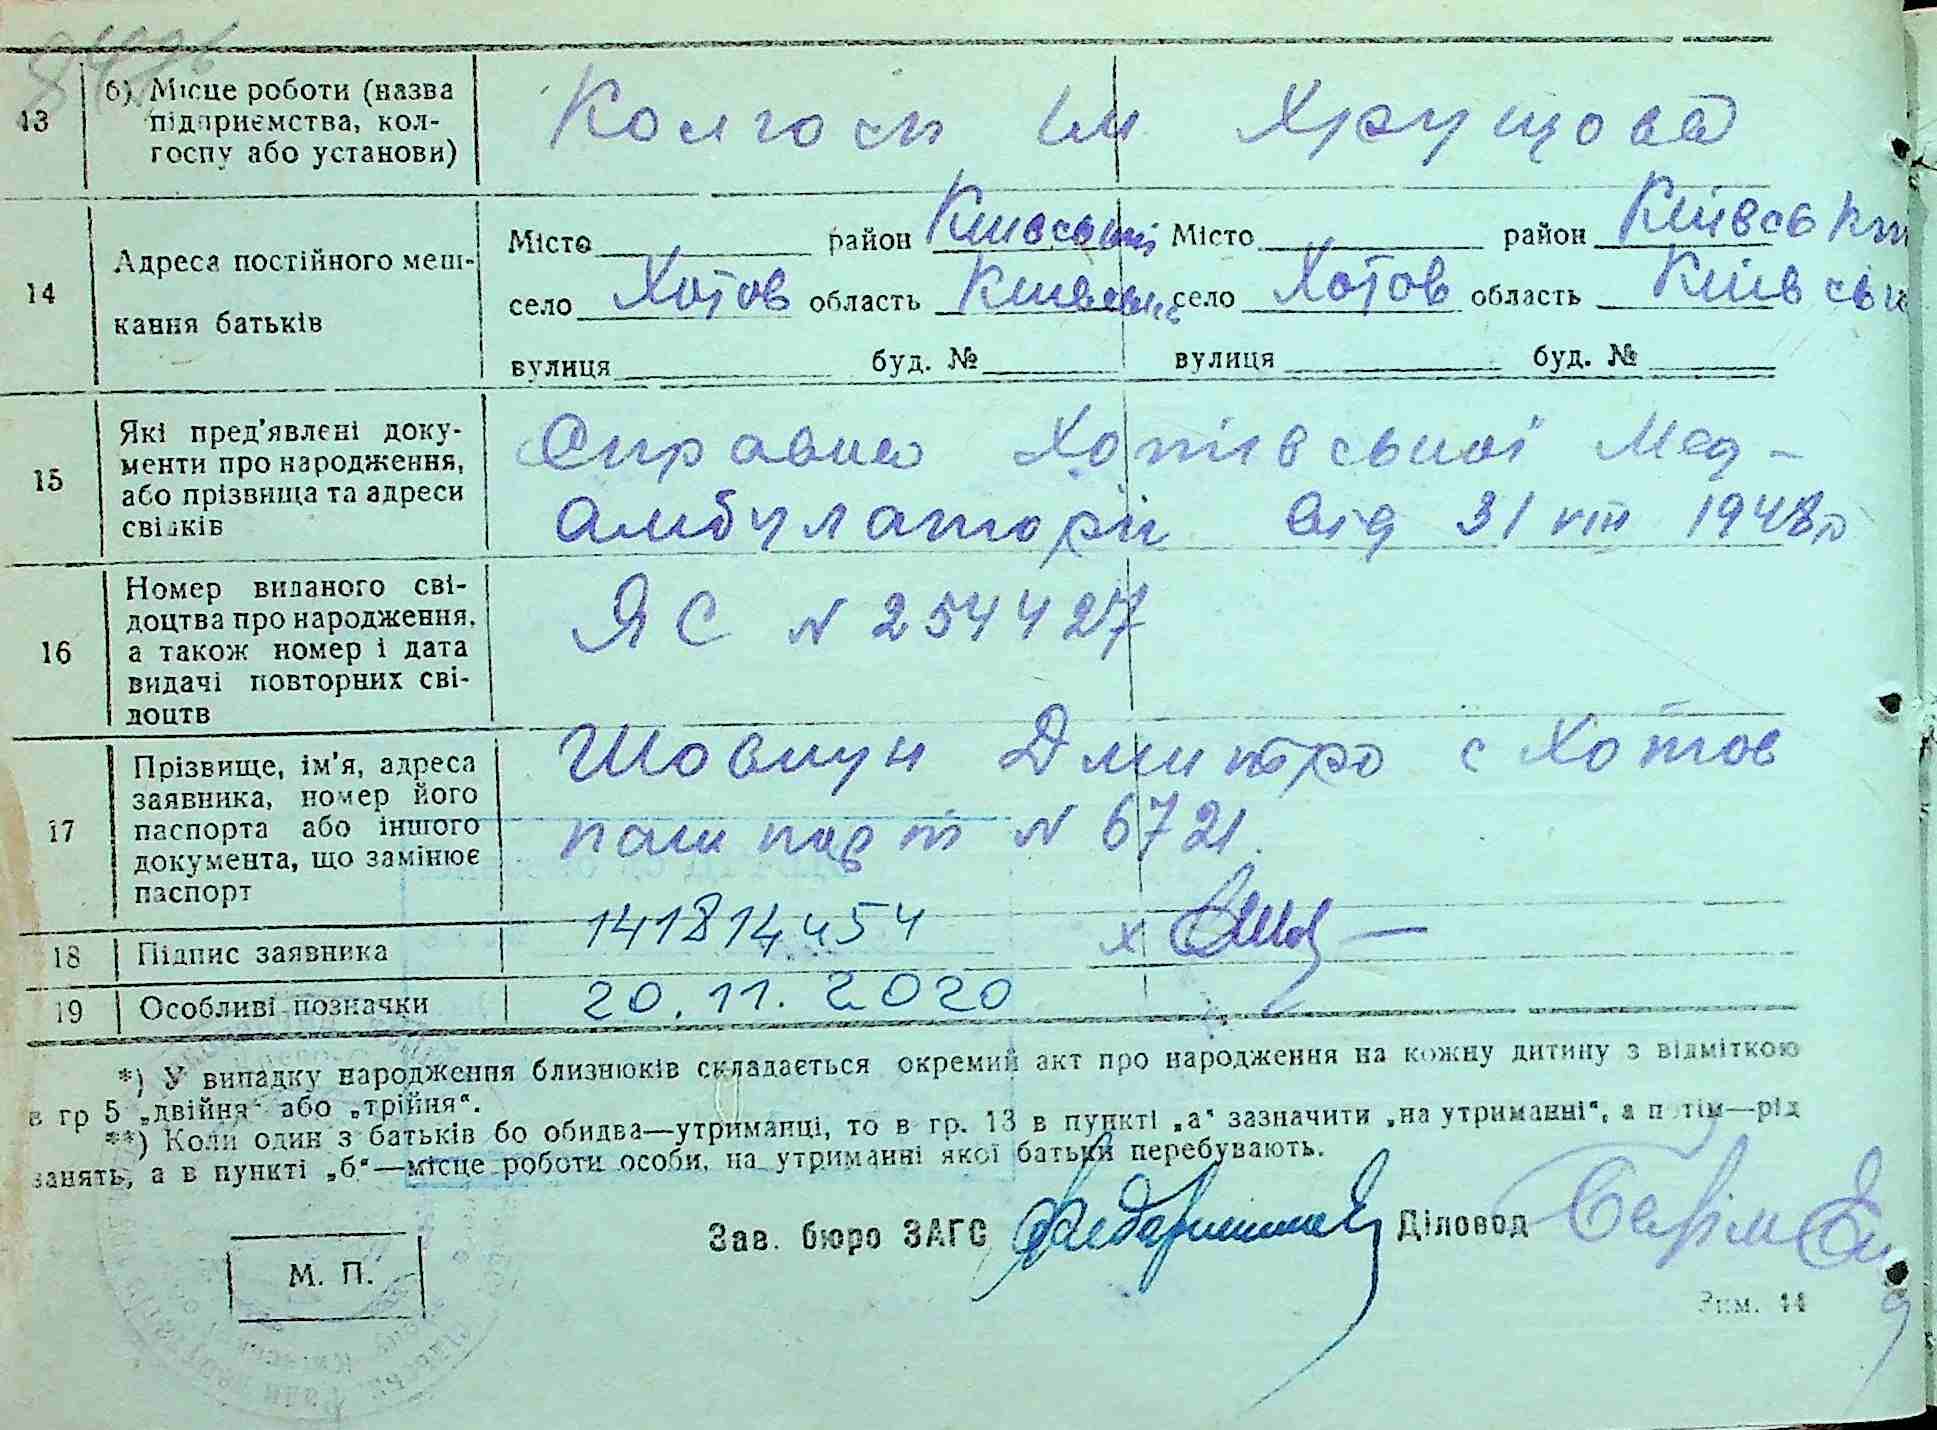 13 б) Місце роботи (назва
підприємства, кол-
госпу або установи)
Колгосп ім Хрущова
14 Адреса постійного меш-
кання батьків
Місто район Київський Місто район Київськи
село Хотов область Київськ село Хотов область Київськ
вулиця буд. № вулиця буд. №
15 Які пред'явлені доку-
менти про народження,
або прізвища та адреси
свідків
Справка Хотівської Мед-
амбулаторіі від 31 VIII 1948 р
16 Номер виданого сві-
доцтва про народження,
а також номер і дата
видачі повторних сві-
доцтв
ЯС N 254427
17 Прізвище, ім'я, адреса
заявника, номер його
паспорта або іншого
документа, що замінює
паспорт
Шовкун Дмитро с Хотов
пашпорт N 6721.
18 Підпис заявника
141814454 х
19 Особливі позначки
20.11.2020
*) У випадку народження близнюків складається окремий акт про народження на кожну дитину з відміткою
в гр 5 „двійня" або „трійня".
**) Коли один з батьків бо обидва—утриманці, то в гр. 13 в пункті „а" зазначити „на утриманні", а потім—рід
занять, а в пункті „б"—місце роботи особи, на утриманні якої батьки перебувають.
Зав. бюро ЗАГС Діловод
М. П.
Зам. 44